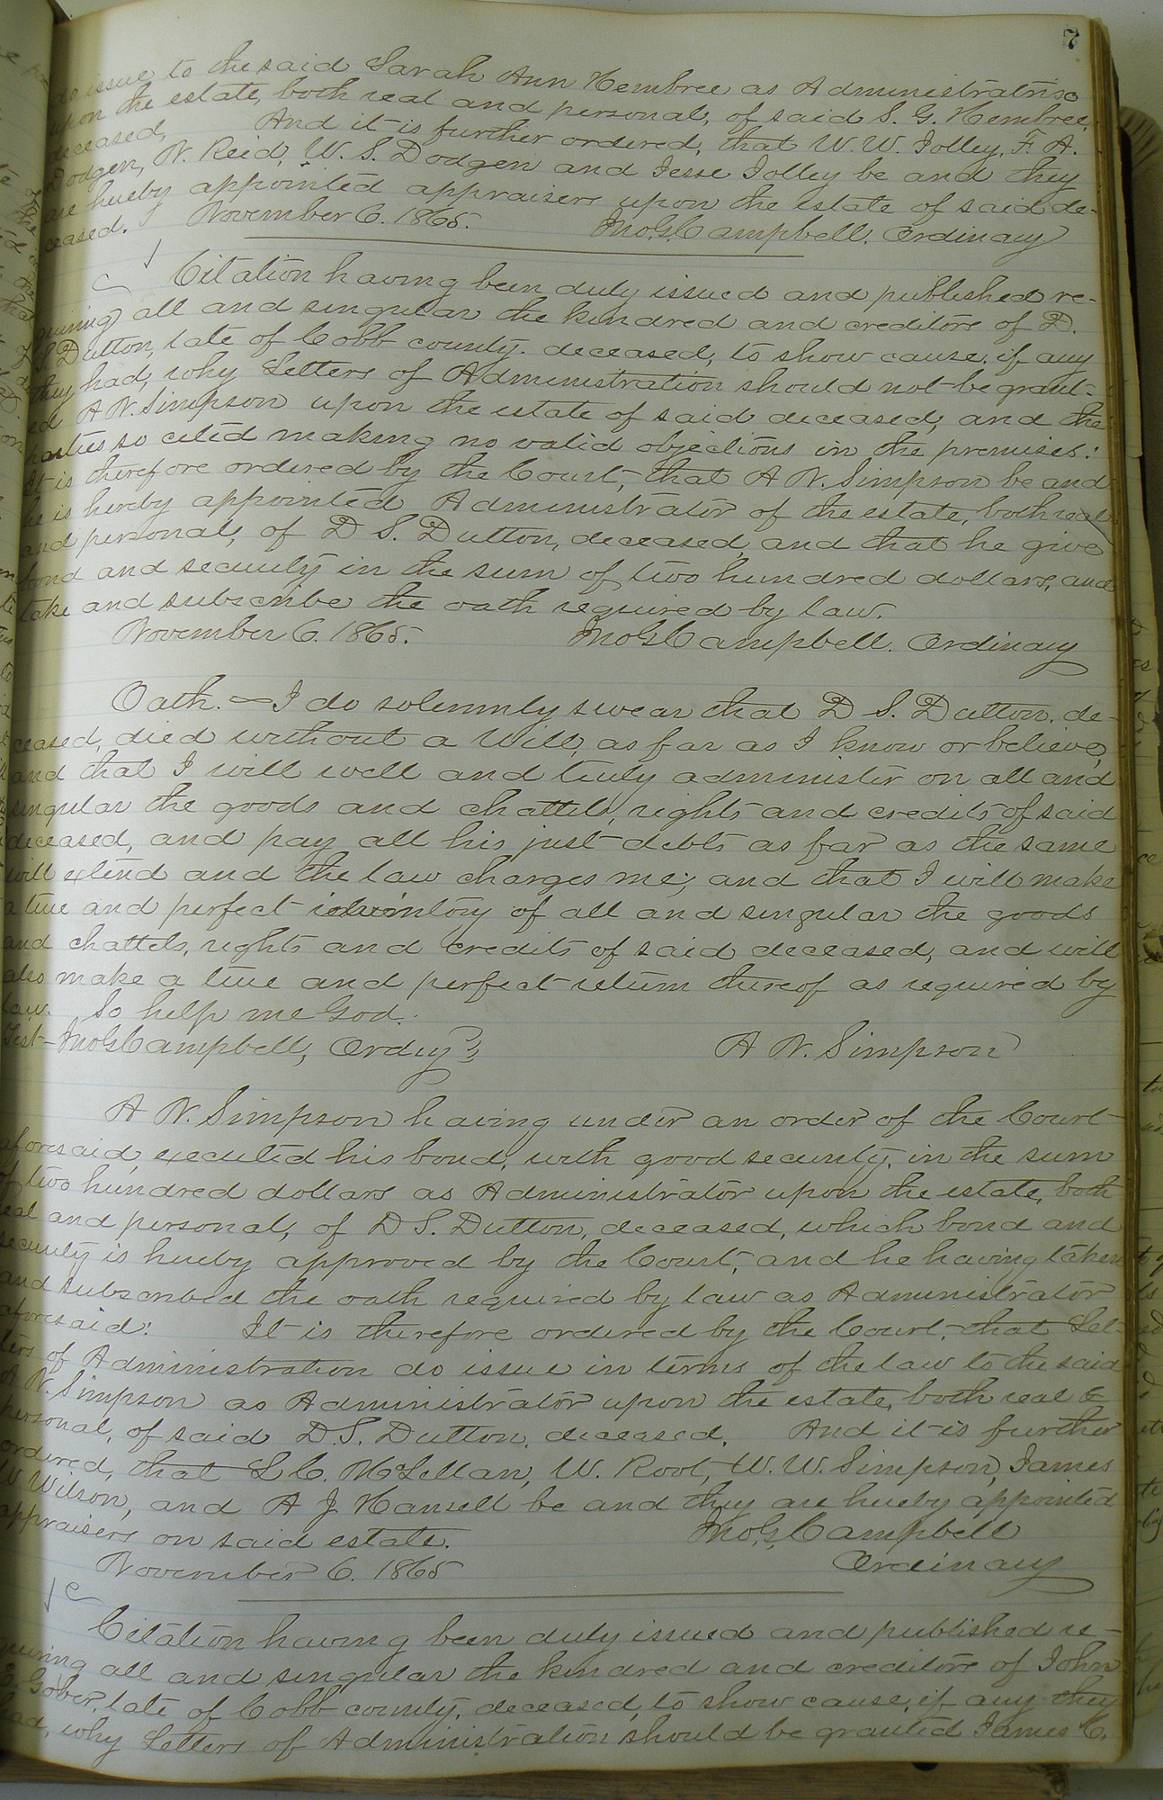 7
do issue to the said Sarah Ann Hembree as Administratrix
upon the estate, both real and personal, of said S. G. Hembree,
deceased. And it is further ordered, that W. W. Jolley, F. A.
Dodgen, N. Reed, W. S. Dodgen and Jesse Jolley be and they
are hereby appointed appraisers upon the estate of said de-
ceased. November 6. 1865. Jno. G. Campbell. Ordinary
Citation having been duly issued and published re-
quiring all and singular the kindred and creditors of D.
S. Dutton, late of Cobb county. deceased, to show cause, if any
they had, why Letters of Administration should not be grant-
ed A N. Simpson upon the estate of said deceased, and the
parties so cited making no valid objections in the premises:
It is therefore ordered by the Court, that A N. Simpson be and
he is hereby appointed Administrator of the estate, both real
and personal, of D S. Dutton, deceased, and that he give
bond and security in the sum of two hundred dollars, and
take and subscribe the oath required by law.
November 6. 1865. Jno G Campbell. Ordinary
Oath. — I do solemnly swear that D S. Dutton, de-
ceased, died without a Will, as far as I know or believe,
and that I will well and truly administer on all and
singular the goods and chattels, rights and credits of said
deceased, and pay all his just debts as far as the same
will extend and the law charges me; and that I will make
a true and perfect inventory of all and singular the goods
and chattels, rights and credits of said deceased, and will
also make a true and perfect return thereof as required by
law. So help me God.
Test— Jno G Campbell, Ordry A N. Simpson
A N. Simpson having under an order of the Court
aforesaid, executed his bond, with good security, in the sum
of two hundred dollars as Administrator upon the estate, both
real and personal, of D S. Dutton, deceased, which bond and
security is hereby approved by the Court, and he having taken
and subscribed the oath required by law as Administrator
aforesaid: It is therefore ordered by the Court, that Let-
ters of Administration do issue in terms of the law to the said
A N. Simpson as Administrator upon the estate, both real &
personal, of said D. S. Dutton, deceased. And it is further
ordered, that L C. McLellan, W. Root, W. W. Simpson, James
W Wilson, and A J. Hansell be and they are hereby appointed
appraisers on said estate. Jno. G. Campbell
November 6. 1865 Ordinary
Citation having been duly issued and published re-
quiring all and singular the kindred and creditors of John
Gober, late of Cobb county, deceased, to show cause, if any they
had, why Letters of Administration should be granted James C.